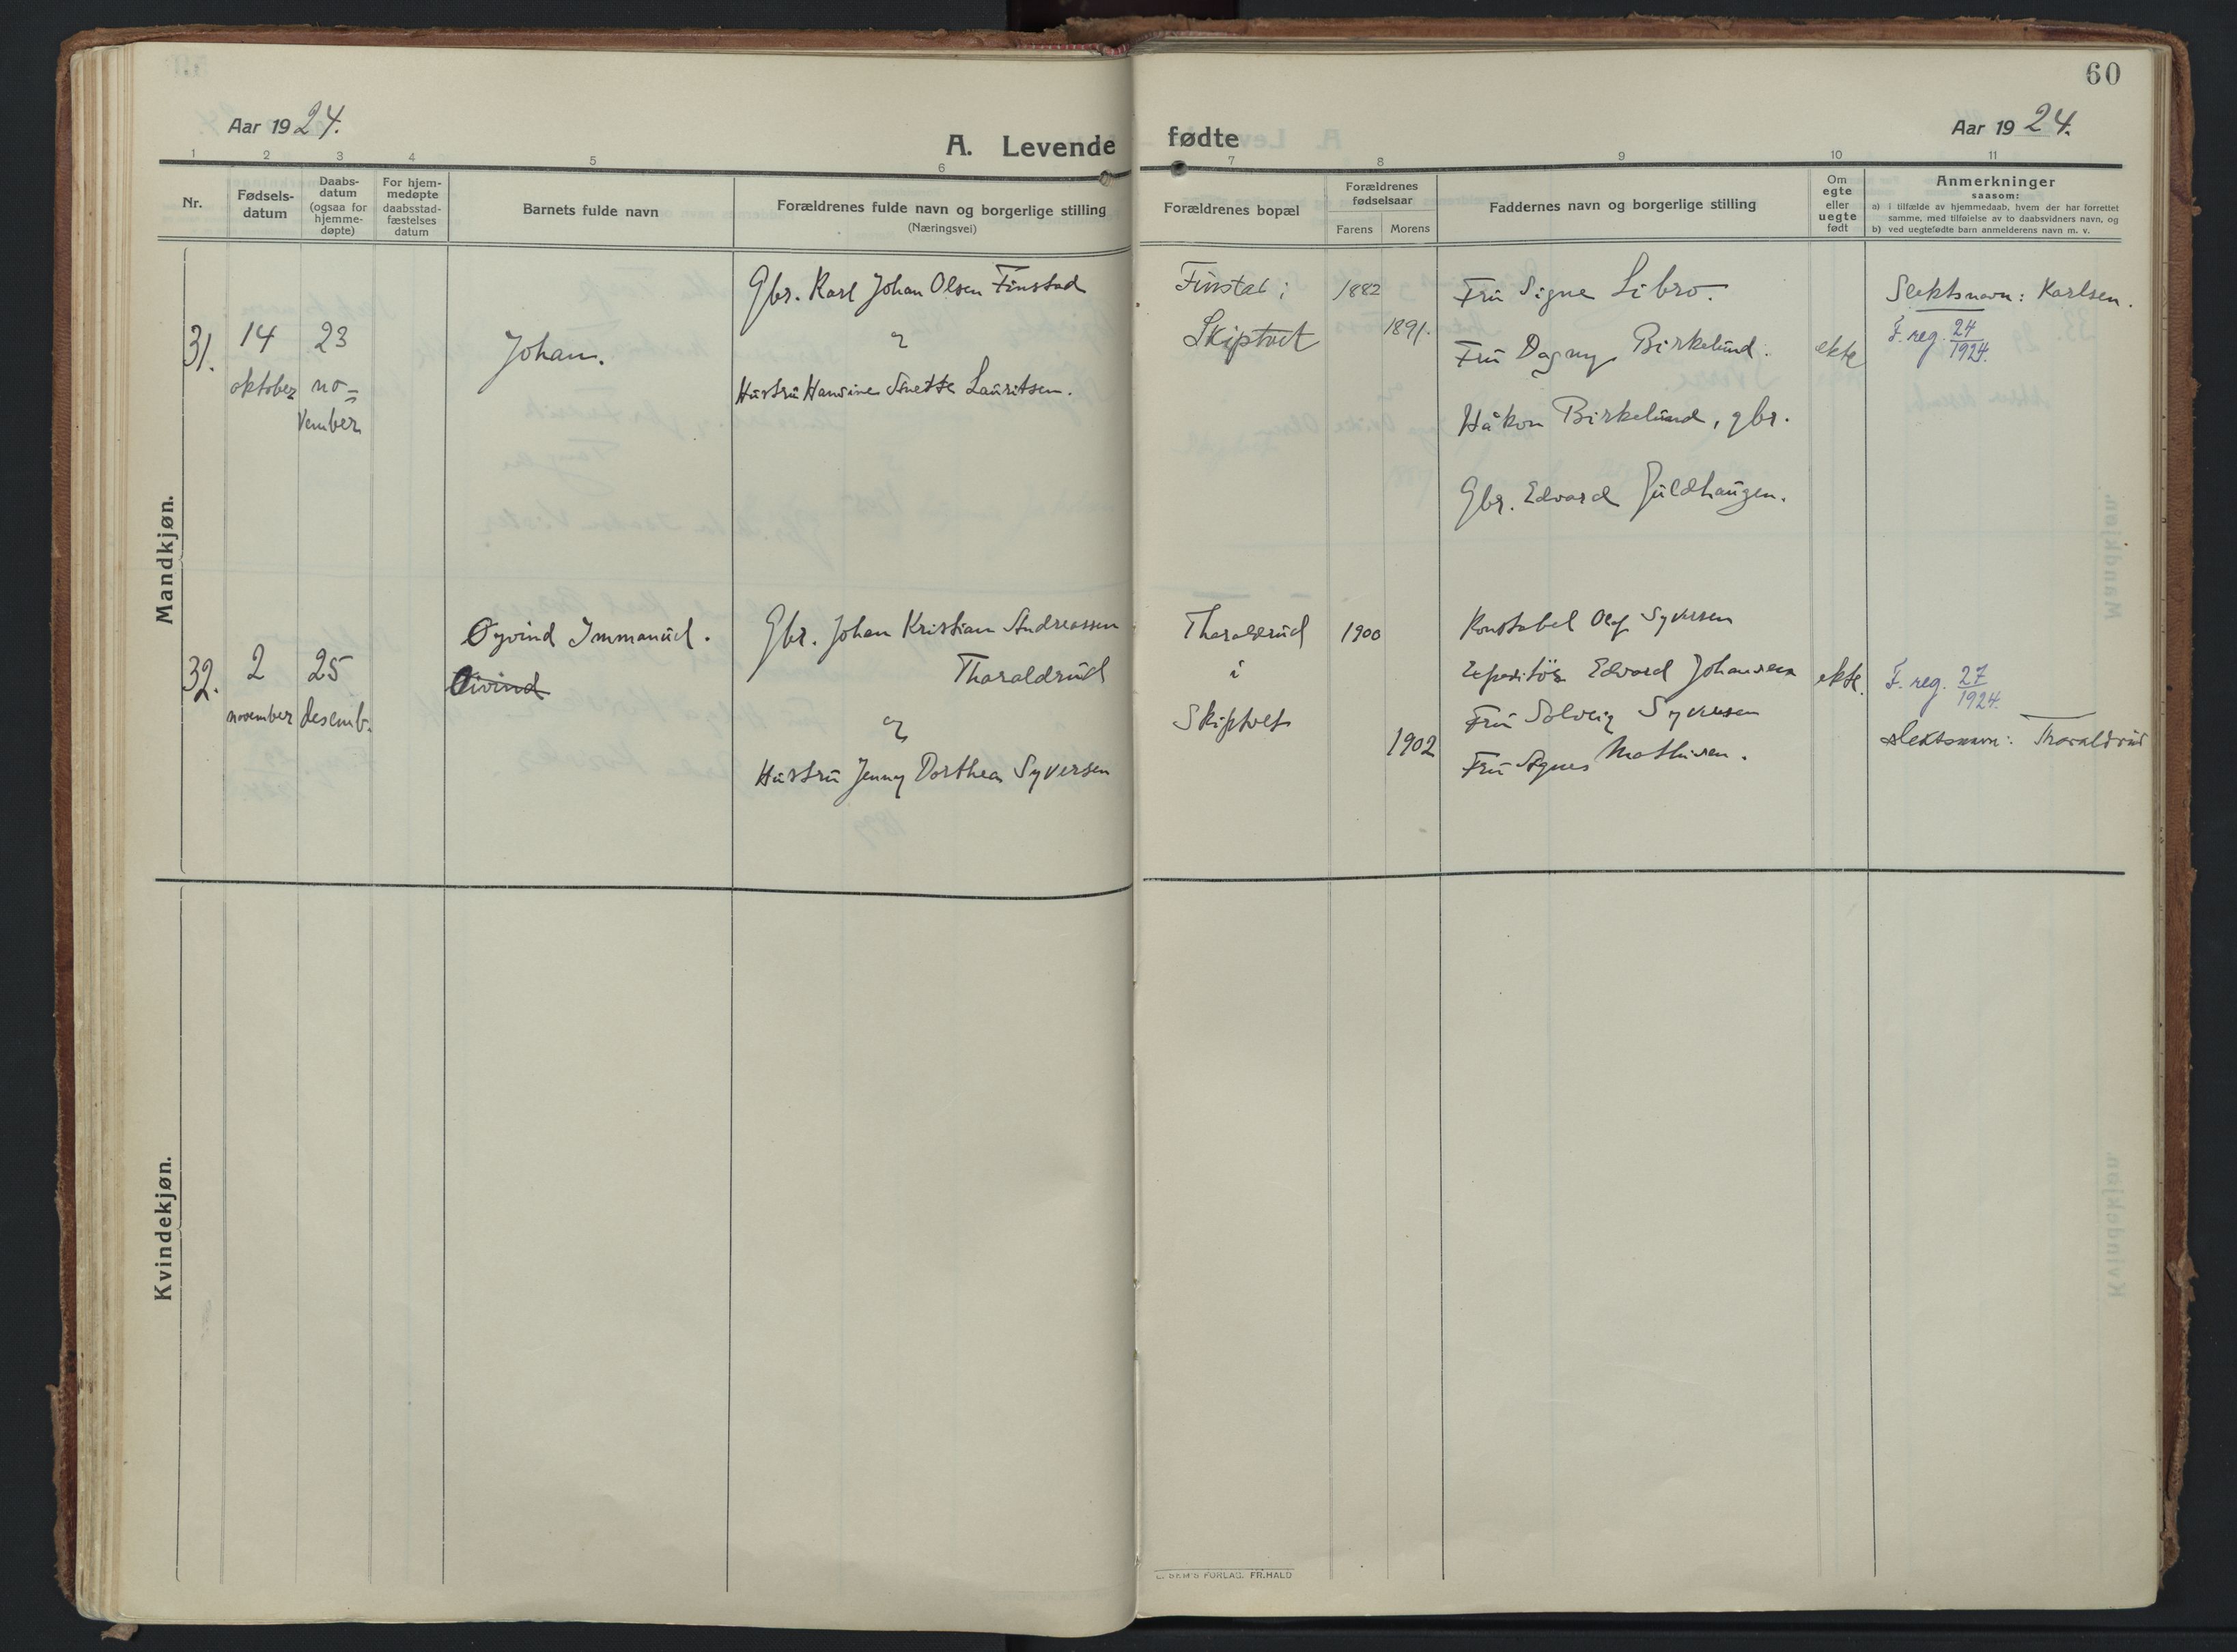 60
Aar 1924.
A. Levende fødte
Aar 1924.
1 2 3 4 5 6 7 8 9 10 11
Nr.
Fødsels-
datum
Daabs-
datum
(ogsaa for
hjemme-
døpte)
For hjem-
medøpte
daabsstad-
fæstelses
datum
Barnets fulde navn
Forældrenes fulde navn og borgerlige stilling
(Næringsvei)
Forældrenes bopæl
Forældrenes
fødselsaar
Farens Morens
Faddernes navn og borgerlige stilling
Om
egte
eller
uegte
født
Anmerkninger
saasom:
a) i tilfælde av hjemmedaab, hvem der har forrettet
samme, med tilføielse av to daabsvidners navn, og
b) ved uegtefødte barn anmelderens navn m. v.
Mandkjøn.
31.
14
oktober
23
no=
vember
Johan.
Gbr. Karl Johan Olsen Finstad
Hustru Hansine Anette Lauritsen.
Finstad i
Skiptvet
1882
1891.
Fru Signe Libro.
Fru Dagny Birkelund.
Håkon Birkelund, gbr.
Gbr. Edvard Guldhaugen.
ekte
Slektsnavn: Karlsen.
F. reg. 24
1924.
32.
2
november
25
desemb.
Øyvind Immanuel.
Øivind
Gbr. Johan Kristian Andreassen
Tharaldrud
Hustru Jenny Dorthea Syversen
Tharaldrud
i
Skiptvet
1900
1902
Konstabel Olaf Syversen
Edvard Johansen
Fru Solveig Syversen
Fru Agnes Mathisen.
ekte.
F. reg. 27
1924.
slektsnavn: Tharaldrud
Kvindekjøn.
SEM'S FORLAG. FR.HALD